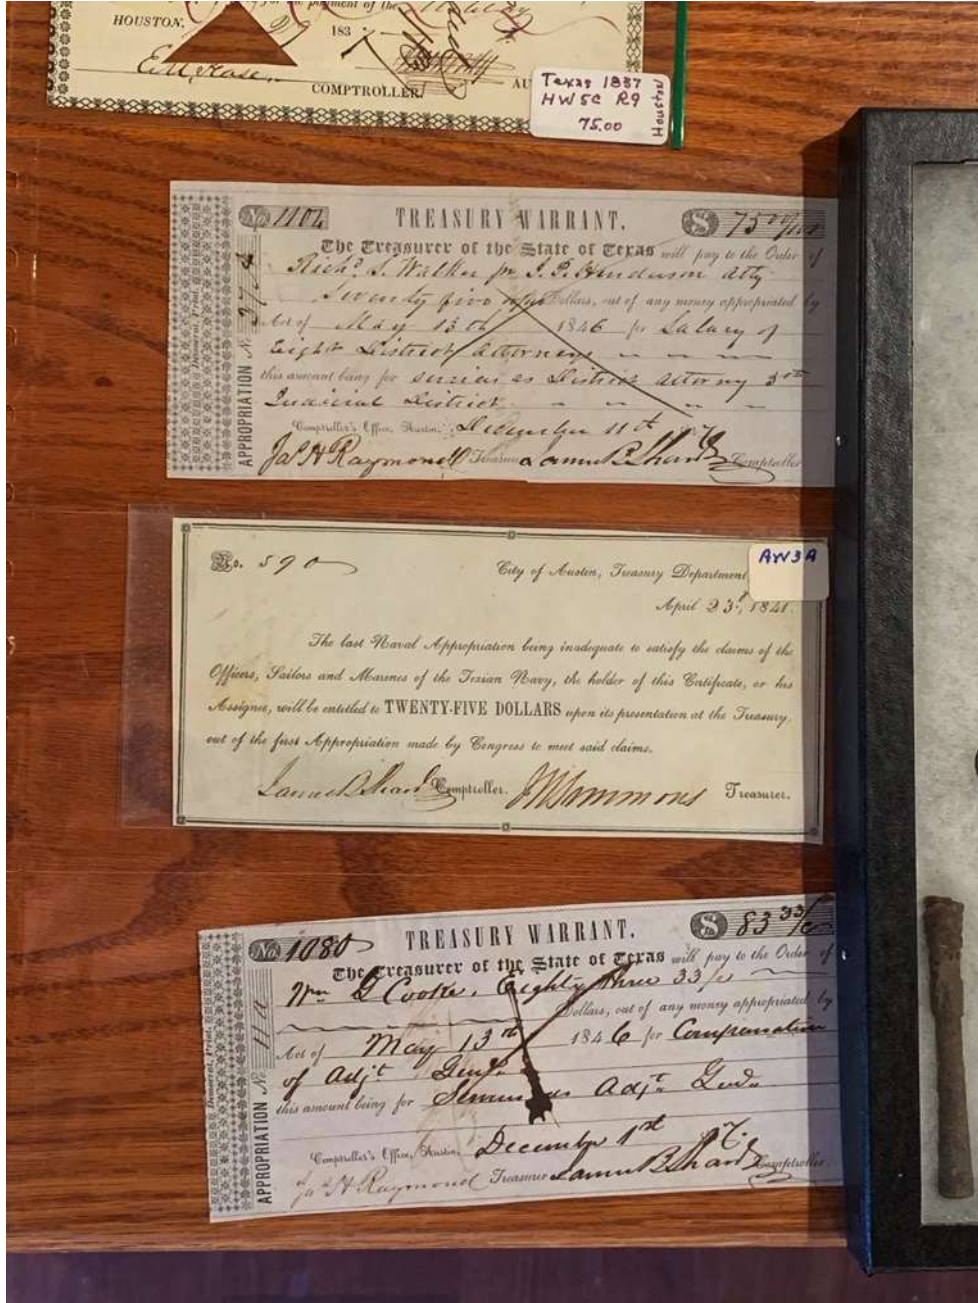 payment of the
HOUSTON,
183
COMPTROLLER. AU
Texas 1837
HW5C R9
75.00
Houston
No 1104 TREASURY WARRANT. $ 75 00/100
The Treasurer of the State of Texas will pay to the Order of
Richd. S. Walker for J. P. Henderson atty
Seventy five Dollars, out of any money appropriated by
Act of May 13th 1846 for Salary of
Eight District attorneys
this amount being for services as District attorney 5th
Judicial District
Comptroller's Office, Austin, December 11th
Jas H Raymond Treasurer Samuel B. Shaw Comptroller
APPROPRIATION No. 373
Democrat, Print.
No. 590
AW3A
City of Austin, Treasury Department
April 23d, 1841.
The last Naval Appropriation being inadequate to satisfy the claims of the
Officers, Sailors and Marines of the Texian Navy, the holder of this Certificate, or his
Assignee, will be entitled to TWENTY-FIVE DOLLARS upon its presentation at the Treasury,
out of the first Appropriation made by Congress to meet said claims.
Comptroller. Treasurer.
No 1080 TREASURY WARRANT. $ 83 33/
The Treasurer of the State of Texas will pay to the Order of
Wm G Cooke, Eighty three 33/
Dollars, out of any money appropriated by
Act of May 13th 1846 for Compensation
of Adjt Genl.
this amount being for Services as Adjt. Genl.
Comptroller's Office, Austin, December 1st
Jas H Raymond Treasurer Samuel B. Shaw Comptroller.
APPROPRIATION No.
Democrat, Print.